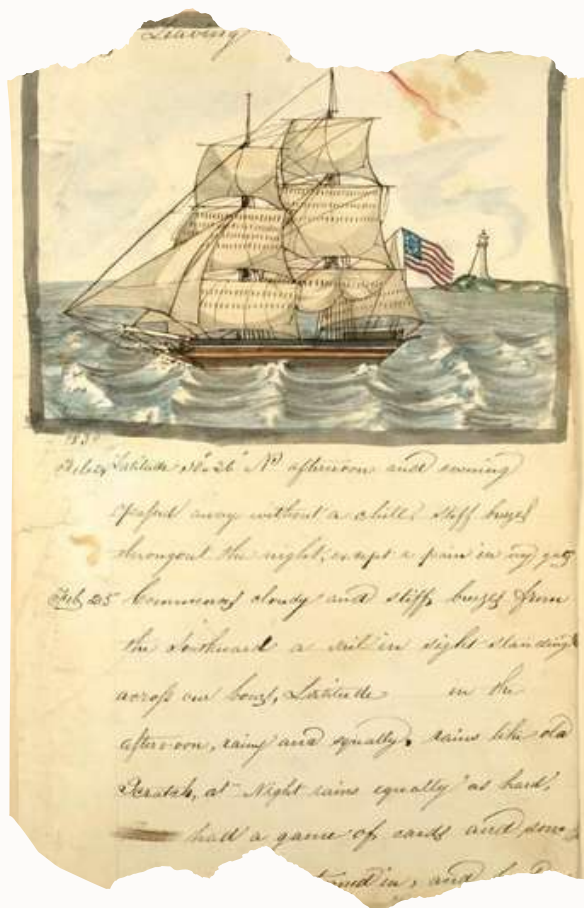 Leaving
183
Latitude 38° 26' N° afternoon and evening
passed away without a chill, stiff breezes
througout the night, except a pain in my guts
Feb 25 Commences cloudy and stiff breezes from
the Southward a sail in sight standing
across our bows, Latitude in the
afternoon, rainy and squally, rains like old
Scratch, at Night rains equally as hard,
had a game of cards and some
turned in, and had